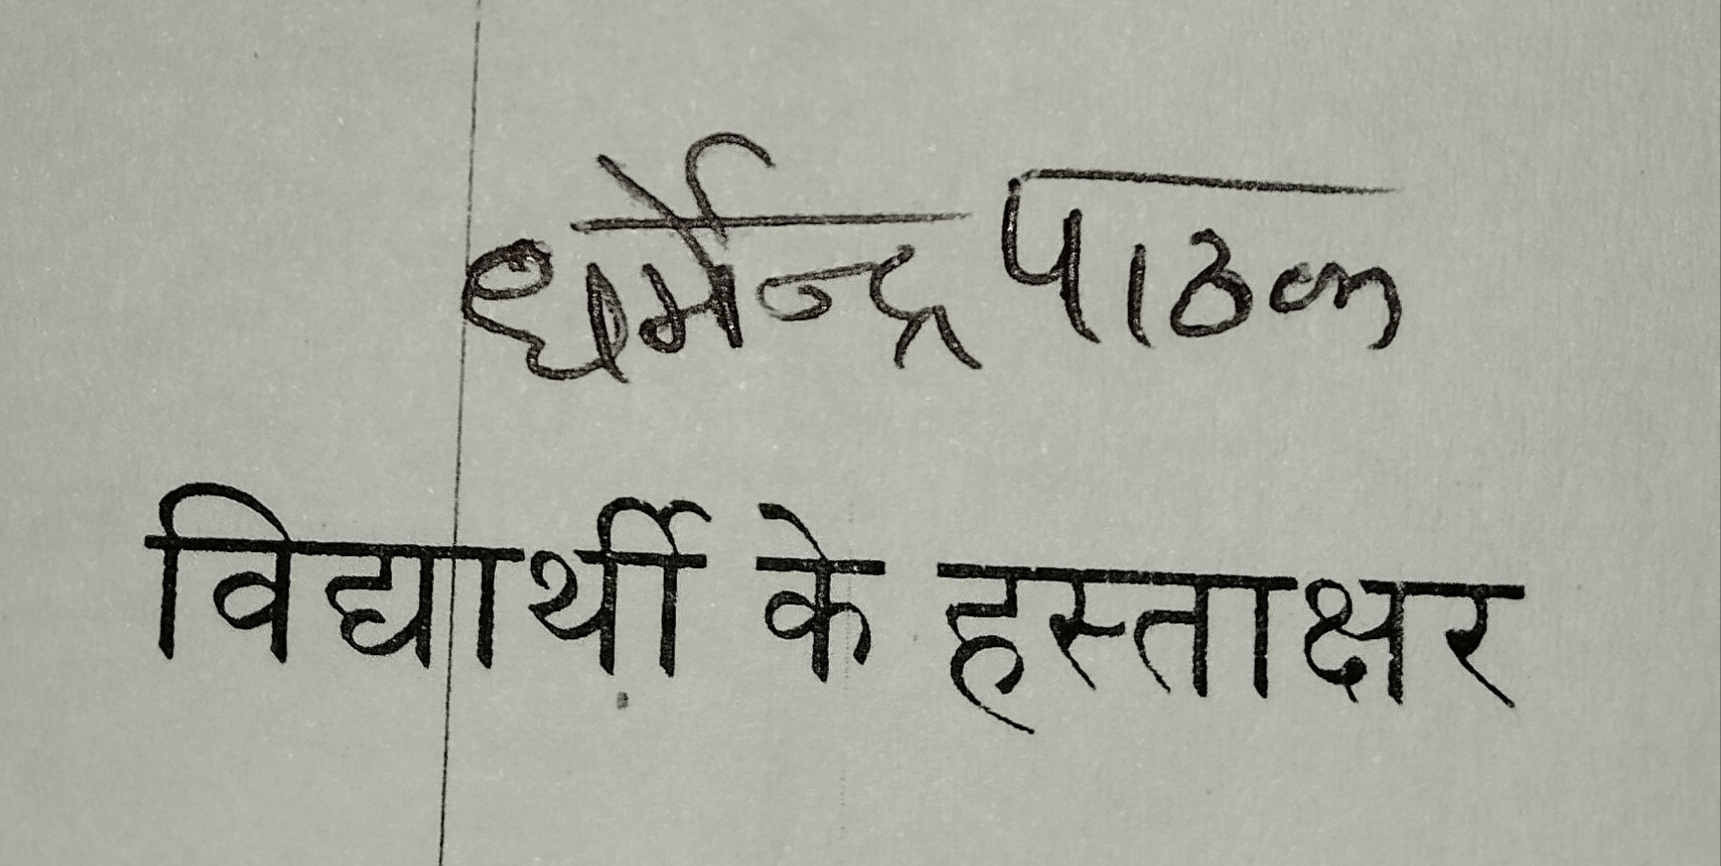 धर्मेन्द्र पाठक
विद्यार्थी के हस्ताक्षर